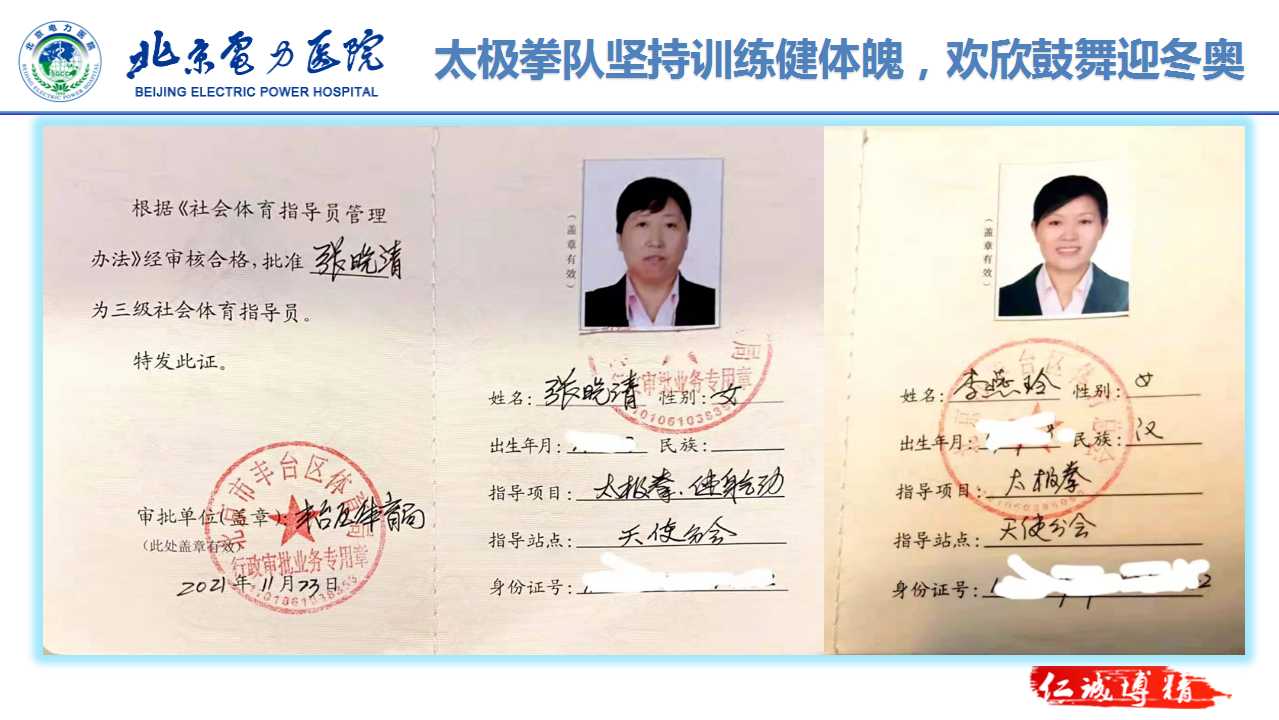 北京电力医院
BEIJING ELECTRIC POWER HOSPITAL
太极拳队坚持训练健体魄，欢欣鼓舞迎冬奥
根据《社会体育指导员管理
办法》经审核合格，批准 张晚清
为三级社会体育指导员。
特发此证。
审批单位(盖章)：丰台区体育局
(此处盖章有效)
2021年11月23日
北京市丰台区体育局
行政审批业务专用章
(盖章有效)
局
审批业务专用章
姓名：张晚清 性别：女
出生年月： 民族：
指导项目：太极拳、健身气功
指导站点：天使分会
身份证号：
(盖章有效)
丰台区
姓名：李燕玲 性别：女
出生年月： 民族：汉
指导项目：太极拳
指导站点：天使分会
身份证号：
仁诚博精